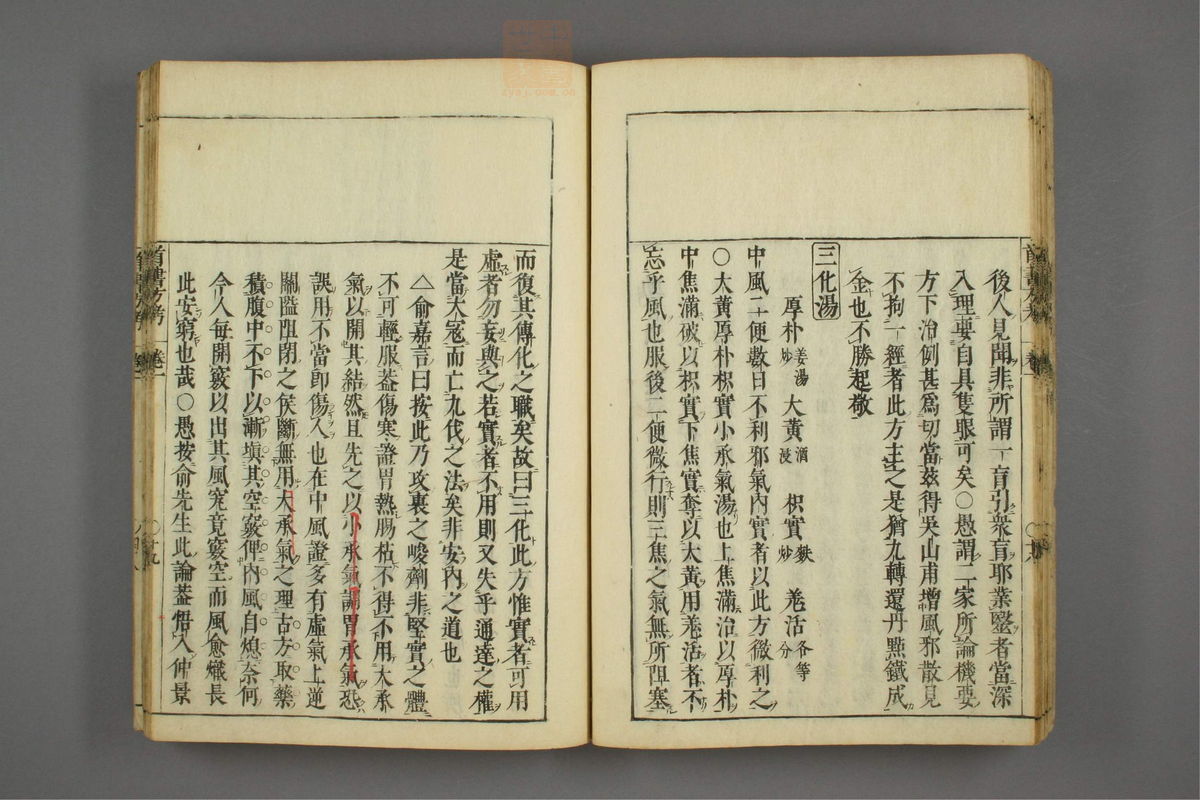 後人見聞非所謂一盲引衆盲耶業毉者當深
入理要自具隻眼可矣〇愚謂二家所論機要
方下治例甚爲切當兹得吳山甫增風邪散見
不拘一經者此方主之是猶九轉還丹㸃鐵成
金也不勝起敬
三化湯
厚朴姜湯炒 大黄酒浸 枳實麩炒 羌活各等分
中風二便數日不利邪氣内實者以此方微利之
〇大黄厚朴枳實小承氣湯也上焦滿治以厚朴
中焦滿破以枳實下焦實奪以大黄用羌活者不
忘乎風也服後二便微行則三焦之氣無所阻塞
而復其傳化之職矣故曰三化此方惟實者可用
虚者勿妄與之若實者不用則又失乎通達之權
是當大寇而亡九伐之法矣非安内之道也
△俞嘉言曰按此乃攻裏之峻劑非堅實之體
不可輕服葢傷寒證胃熱腸枯不得不用大承
氣以開其結然且先之以小承氣調胃承氣恐
誤用不當即傷人也在中風證多有虚氣上逆
關隘阻閉之候斷無用大承氣之理古方取藥
積腹中不下以漸塡其空竅俾内風自熄奈何
今人每開竅以出其風究竟竅空而風愈熾長
此安窮也哉〇愚按俞先生此論葢悟入仲景
首書方考 卷一
〇九